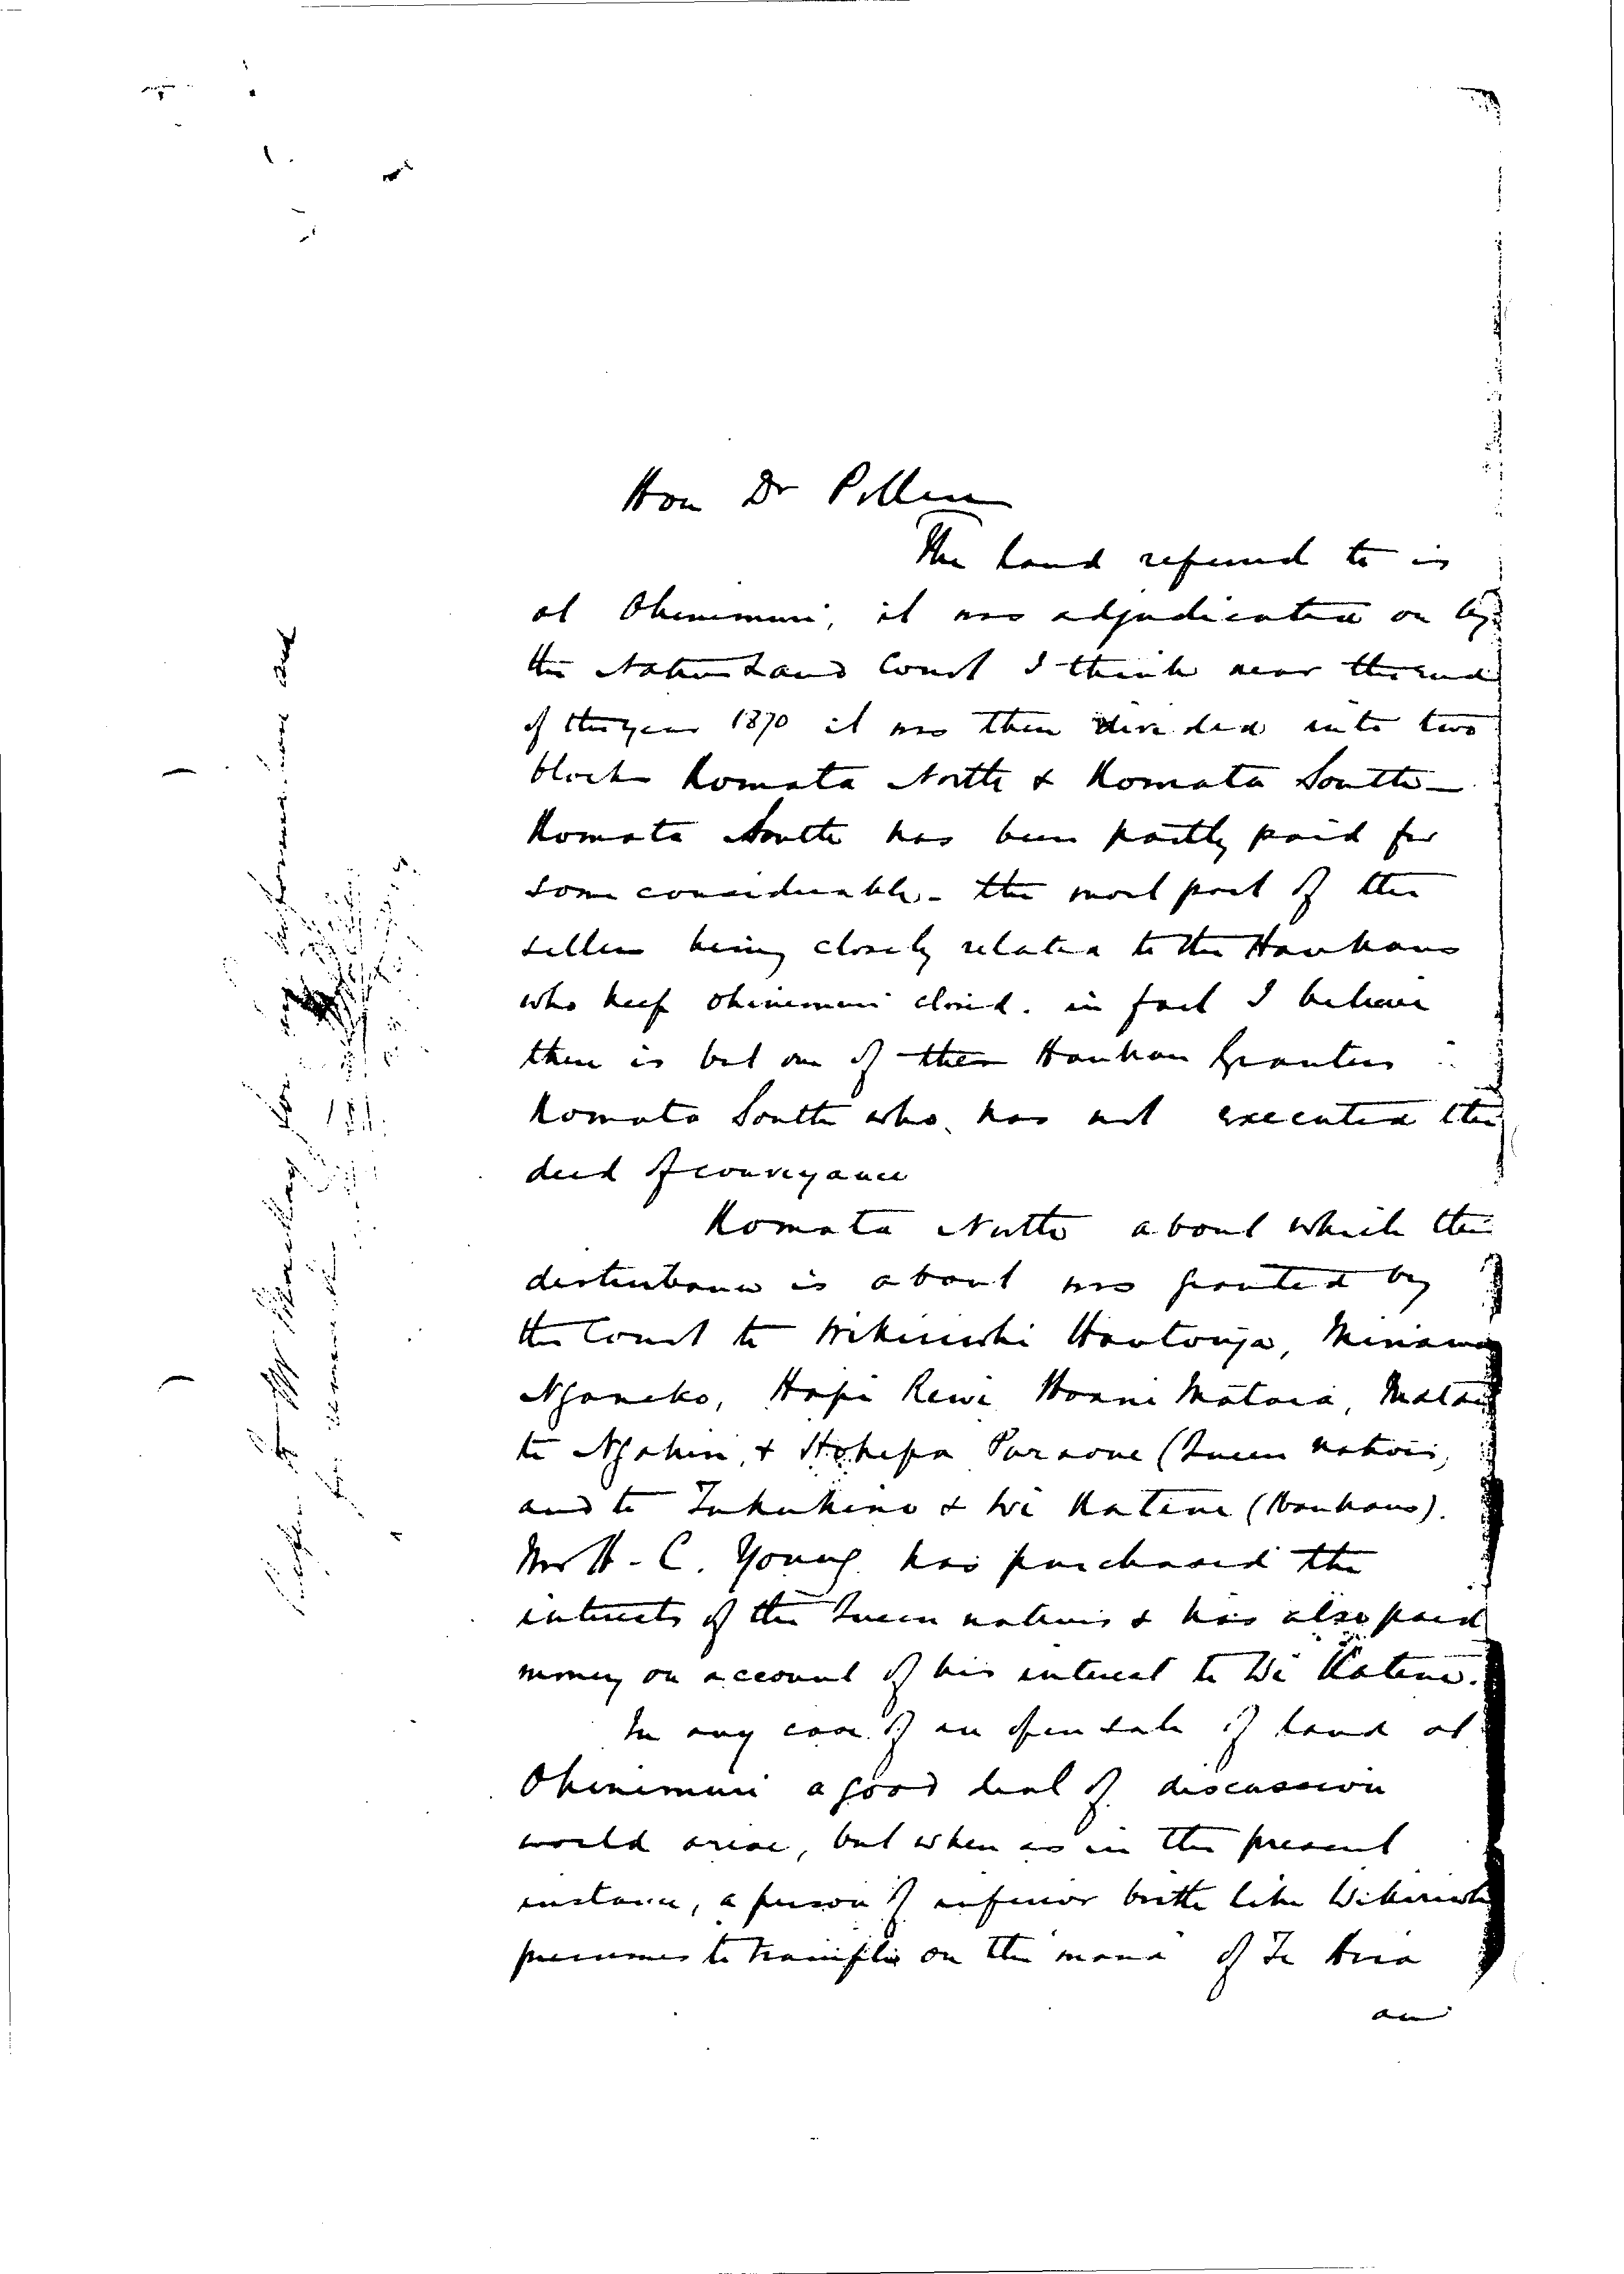 Hon Dr Pollen
The land referred to is
at Ohinemuri, it was adjudicated on by
the Native Land Court I think near the end
of the year 1870 it was then divided into two
blocks Komata North & Komata South —
Komata South has been partly paid for
some considerable - the most part of the
sellers being closely related to the Hauhaus
who keep Ohinemuri closed. in fact I believe
there is but one of the Hauhau Grantees
Komata South who has not executed the
deed of conveyance
Komata North about which the
disturbance is about was granted by
the Court to Wikiriwhi Hautonga, Miriama
Nganeko, Hapi Rewi Hoani Mataia, Mata
te Ngahu, & Hohepa Paraone (Queen natives,
and to Tukukino & Wi Katene (Hauhaus).
Mr H. C. Young has purchased the
interests of the Queen natives & has also paid
money on account of his interest to Wi Katene.
In any case of an open sale of land at
Ohinemuri a good deal of discussion
would arise, but when as in the present
instance, a person of inferior birth like Wikiriwhi
presumes to trample on the "mana" of Te Hira
an
Refer to Mr Mackay for information and